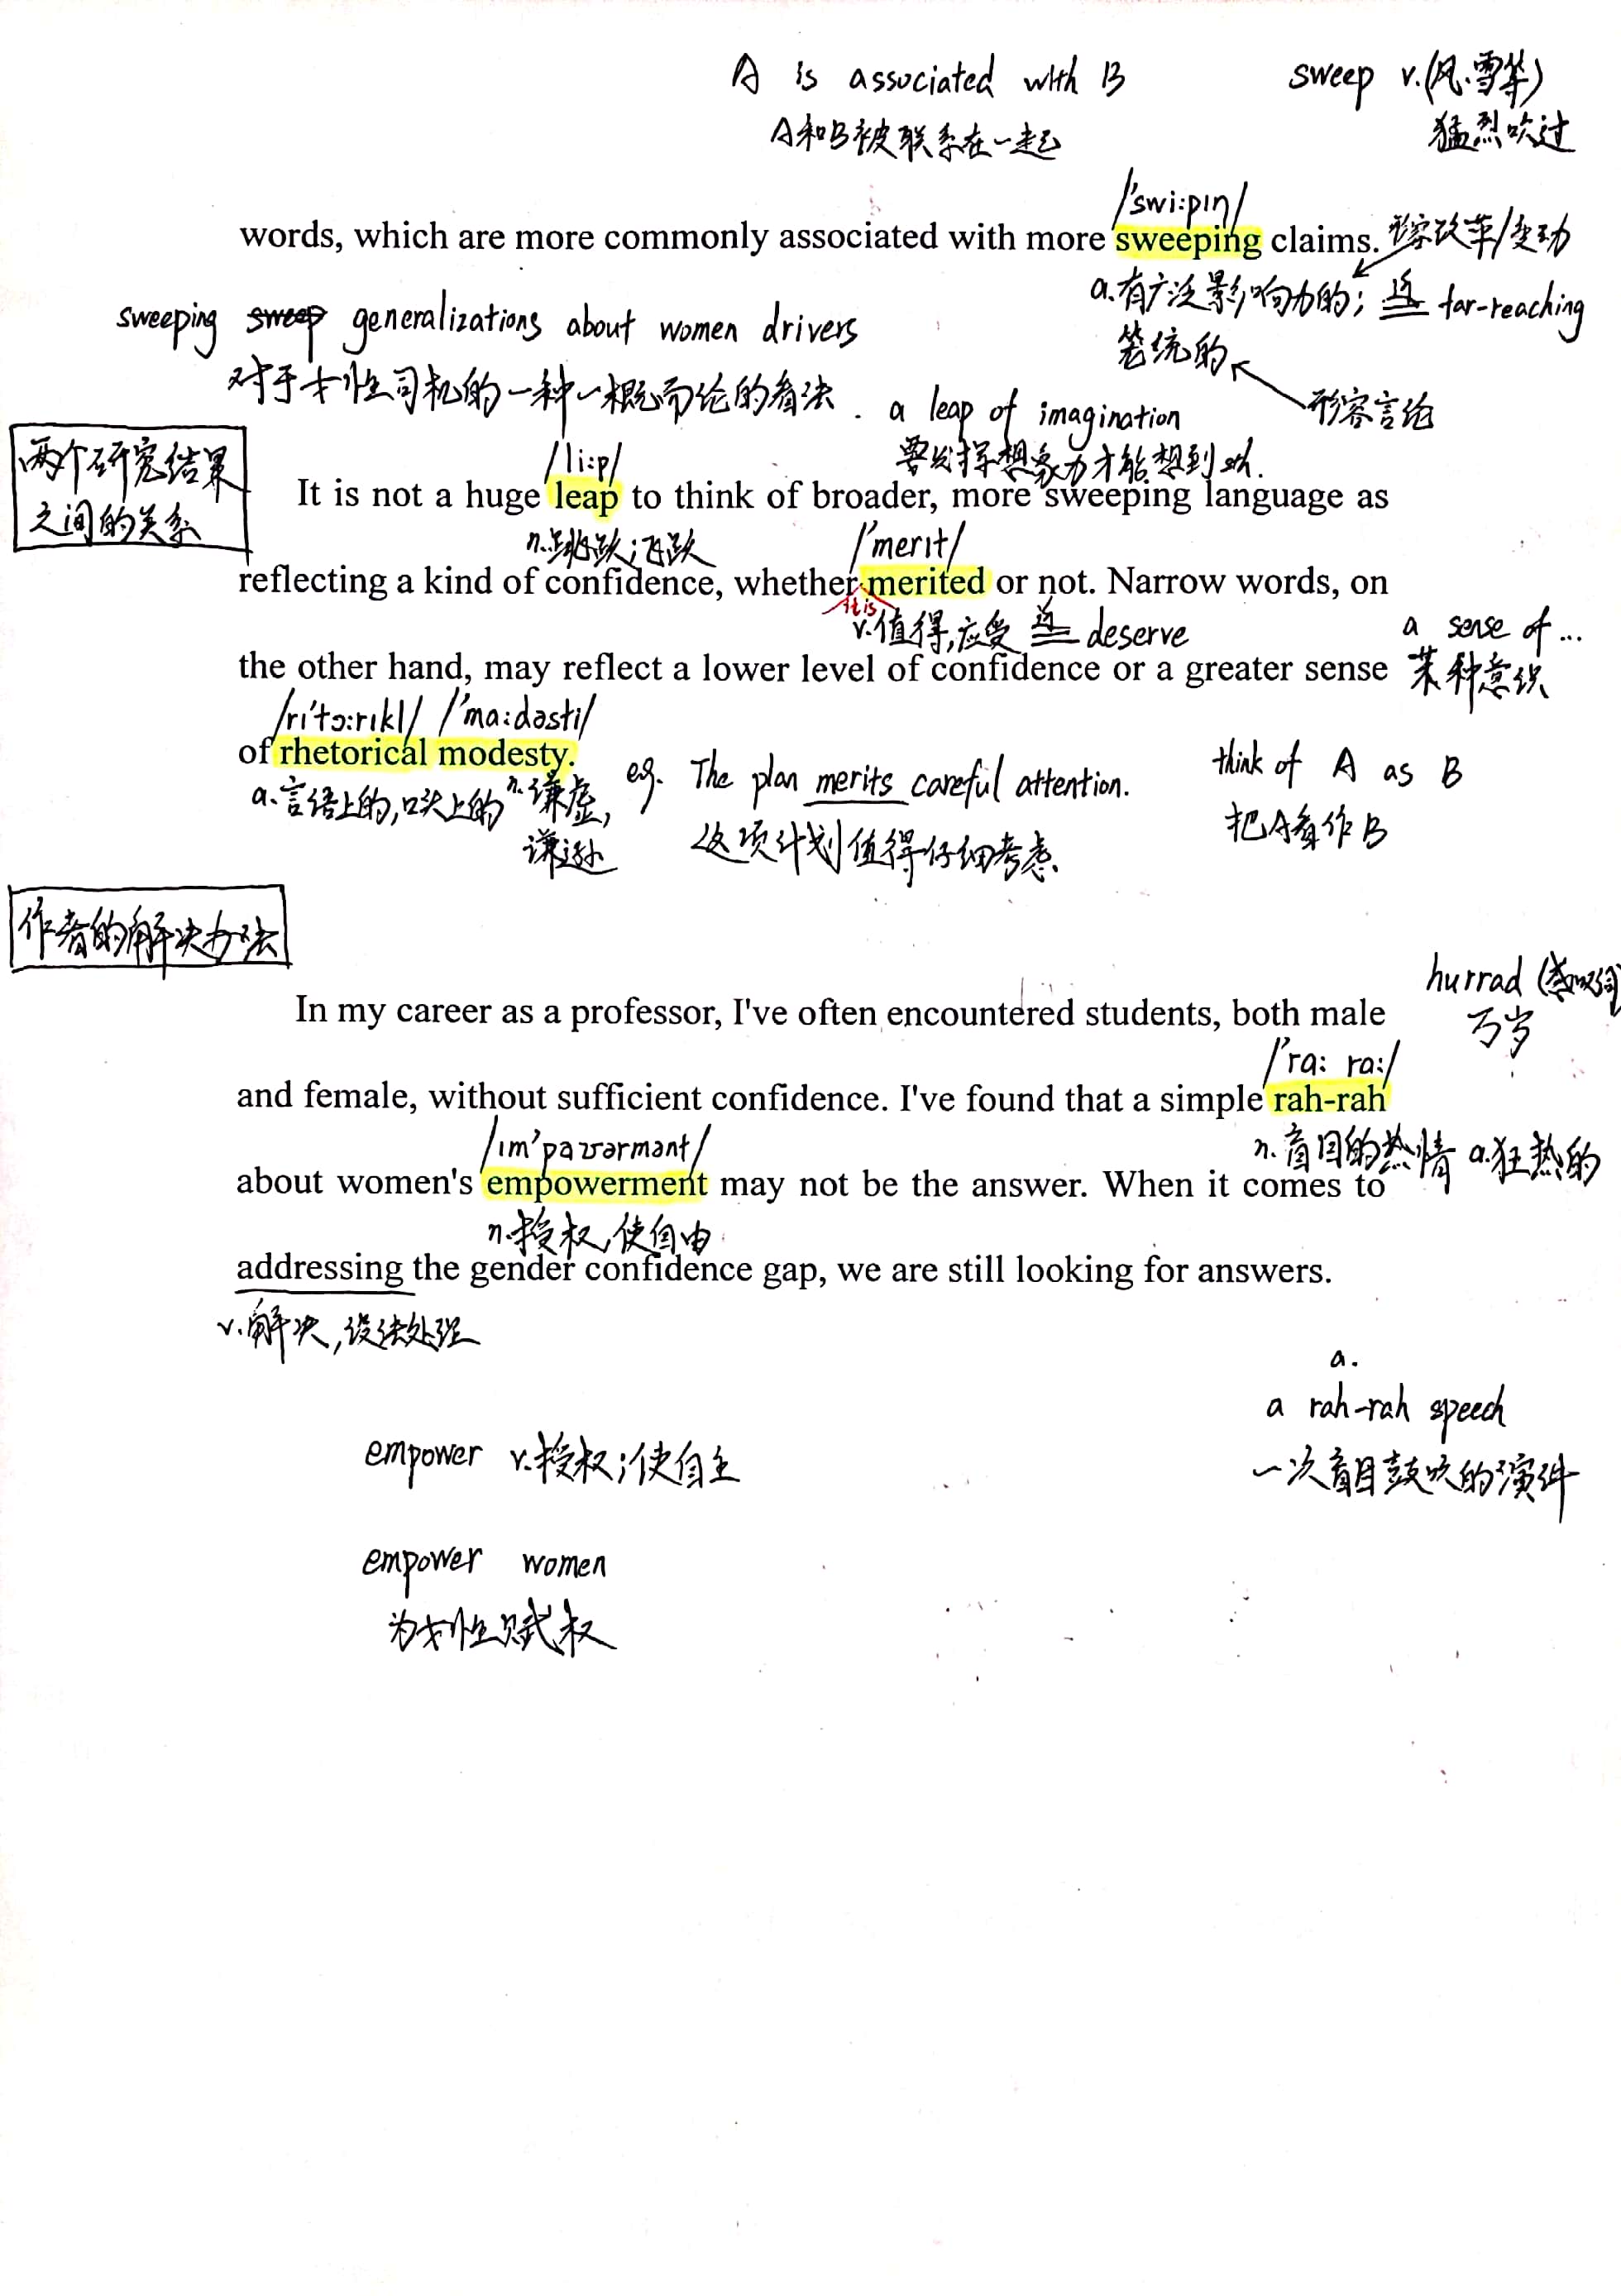 A is associated with B
sweep v.(风、雪等)
A和B被联系在一起
猛烈吹过
/'swi:pɪŋ/
words, which are more commonly associated with more sweeping claims.
形容改革/变动
a.有广泛影响力的; 近 far-reaching
sweeping sweep generalizations about women drivers
笼统的
对于女性司机的一种一概而论的看法.
形容言论
a leap of imagination
要发挥想象力才能想到sth.
两个研究结果
之间的关系
/li:p/
It is not a huge leap to think of broader, more sweeping language as
n.跳跃;飞跃
/'merɪt/
reflecting a kind of confidence, whether merited or not. Narrow words, on
it is
v.值得,应受 近 deserve
a sense of ...
the other hand, may reflect a lower level of confidence or a greater sense
某种意识
/rɪ'tɔ:rɪkl/ /'mɑ:dəsti/
of rhetorical modesty.
a.言语上的,口头上的
n.谦虚,
谦逊
eg. The plan merits careful attention.
这项计划值得仔细考虑.
think of A as B
把A看作B
作者的解决办法
hurrad (感叹词)
万岁
In my career as a professor, I've often encountered students, both male
/'rɑ: rɑ:/
and female, without sufficient confidence. I've found that a simple rah-rah
n.盲目的热情 a.狂热的
/ɪm'paʊərmənt/
about women's empowerment may not be the answer. When it comes to
n.授权,使自由
addressing the gender confidence gap, we are still looking for answers.
v.解决,设法处理
a.
a rah-rah speech
一次盲目鼓吹的演讲
empower v.授权;使自主
empower women
为女性赋权